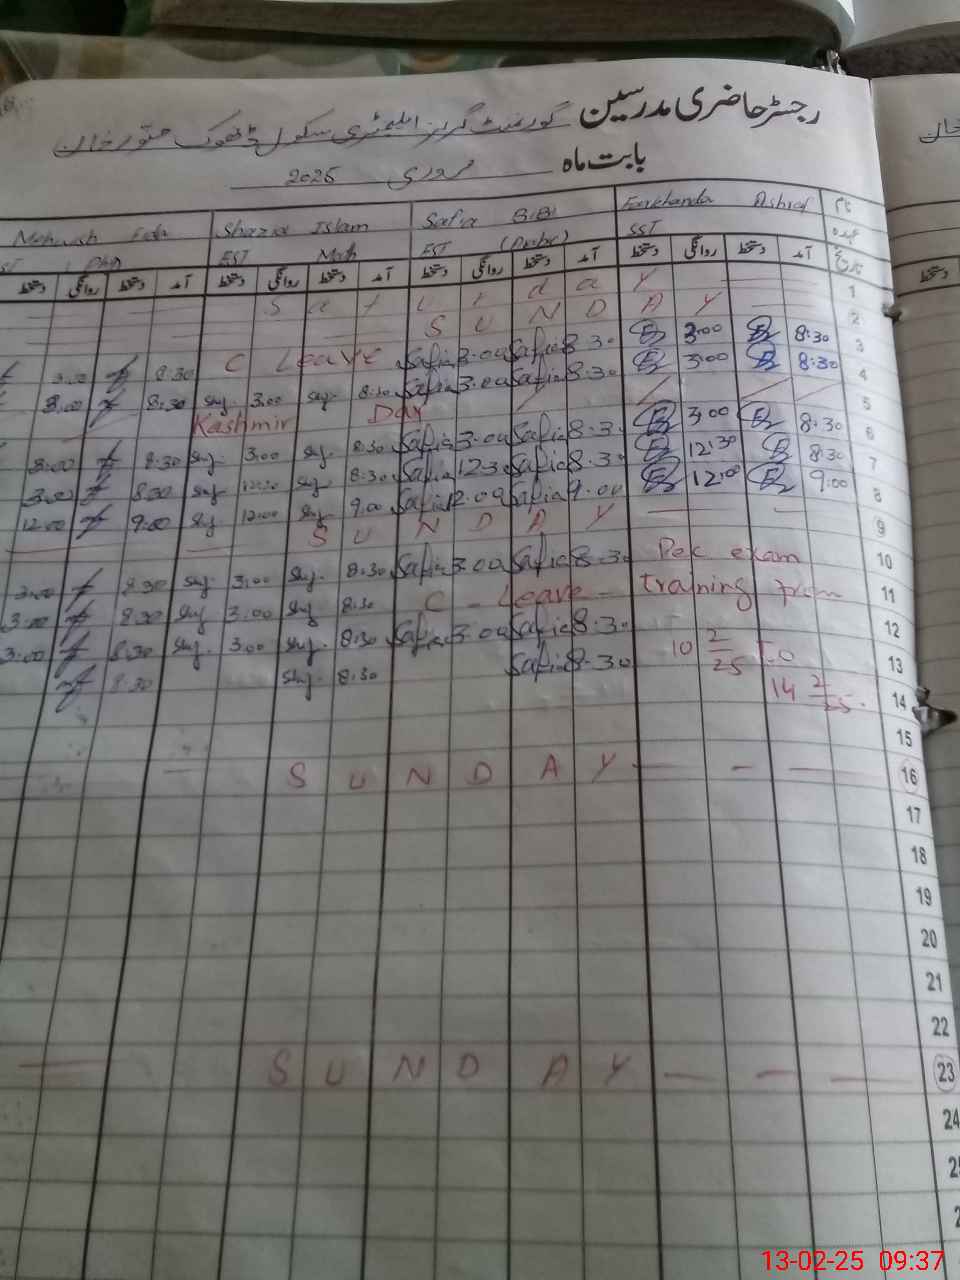 رجسٹر حاضری مدرسین گورنمنٹ گرلز ایلیمنٹری سکول ڈھوک خان
بابت ماہ فروری 2025
نام Farkhanda Ashraf Safia BiBi Shazia Islam Mehwish
عہدہ SST EST EST Math
تاریخ آمد دستخط روانگی دستخط آمد دستخط روانگی دستخط آمد دستخط روانگی دستخط آمد دستخط روانگی دستخط
1 S a t u r d a y
2 S U N D A Y
3 8:30 3:00 8:30 Safia 3:00 Safia C Leave 8:30 3:00
4 8:30 3:00 8:30 Safia 3:00 Safia 8:30 3:00 8:30 3:00
5 Kashmir Day
6 8:30 3:00 8:30 Safia 3:00 Safia 8:30 3:00 8:30 3:00
7 8:30 12:30 8:30 Safia 12:30 Safia 8:30 12:30 8:30
8 9:00 12:00 9:00 Safia 12:00 Safia 9:00 12:00 9:00 12:00
9 S U N D A Y
10 Pec exam 8:30 Safia 3:00 Safia 8:30 3:00 8:30 3:00
11 training from C - Leave - 8:30 3:00 8:30 3:00
12 8:30 Safia 3:00 Safia 8:30 3:00 8:30 3:00
13 10 2/25 To 8:30 Safia 8:30 8:30
14 14 2/25
15
16 S U N D A Y
17
18
19
20
21
22
23 S U N D A Y
24
13-02-25 09:37